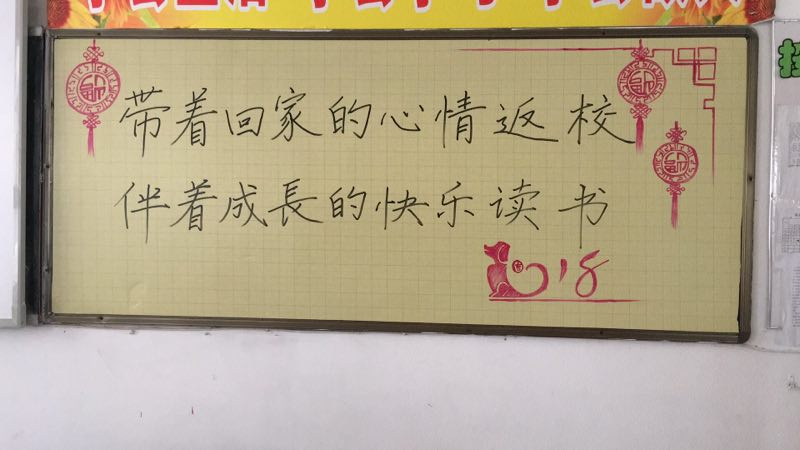 带着回家的心情返校
伴着成長的快乐读书
2018